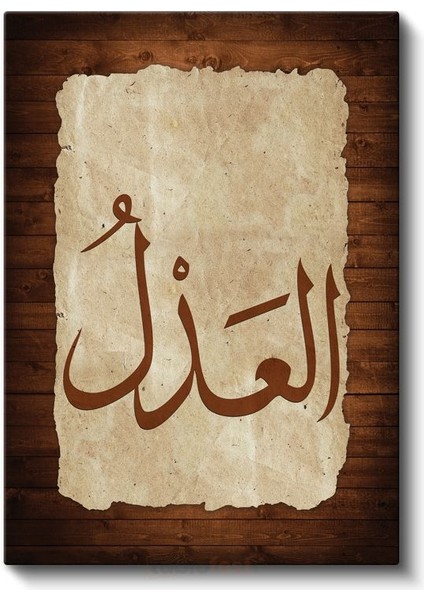 العَدْلُ